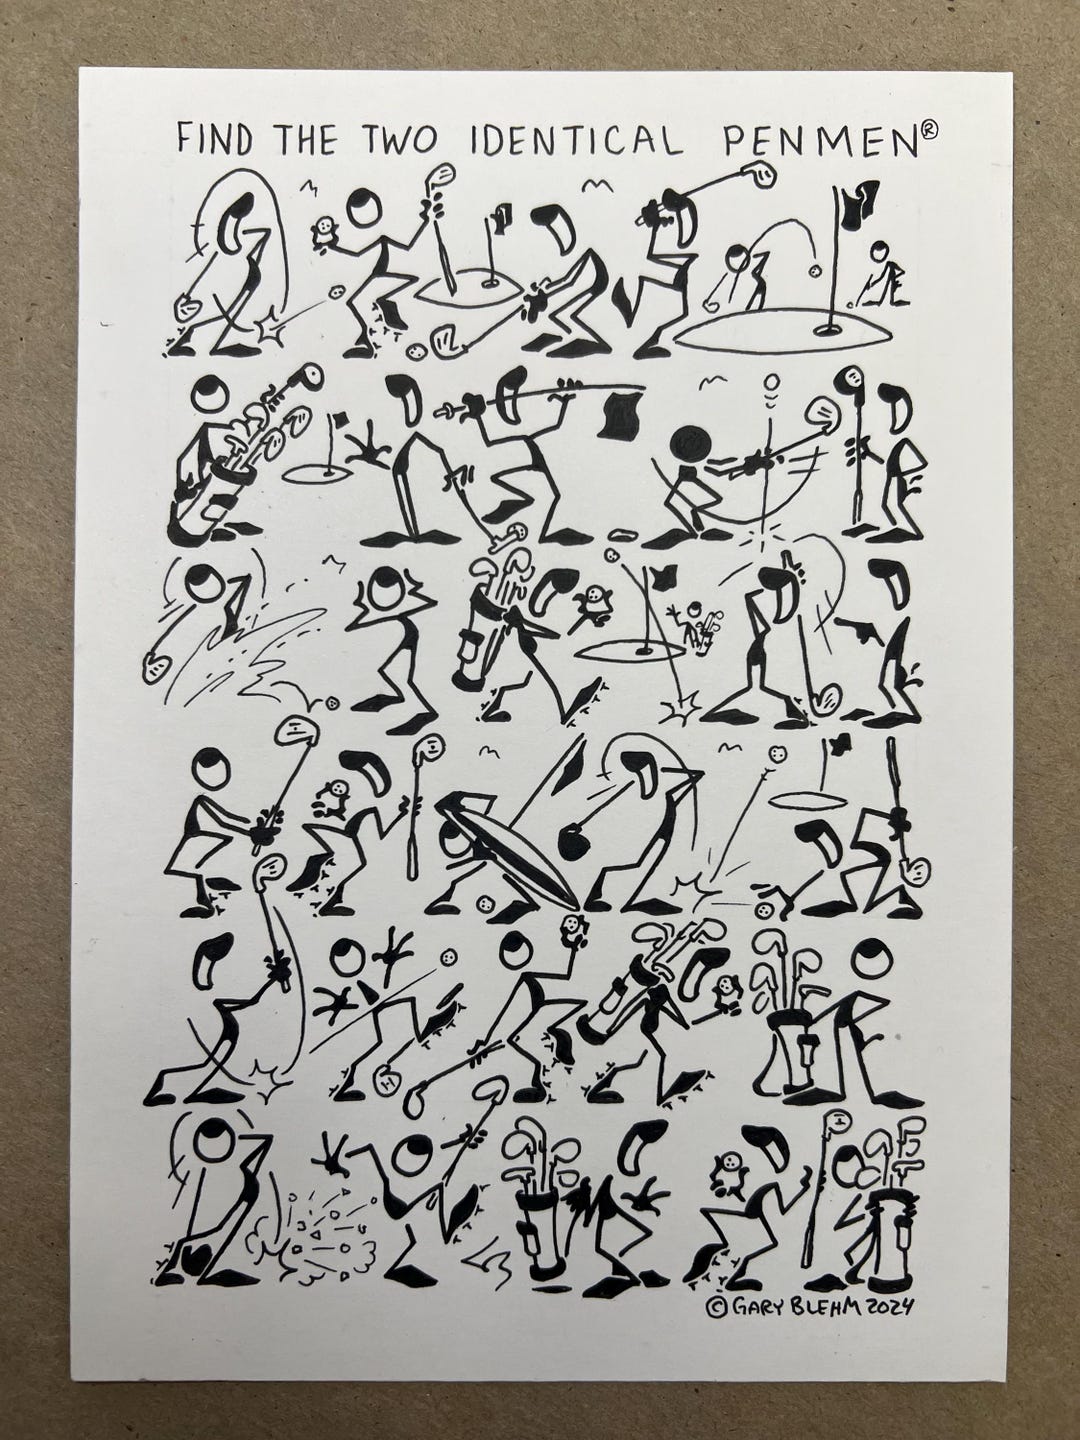 FIND THE TWO IDENTICAL PENMEN®
© GARY BLEHM 2024